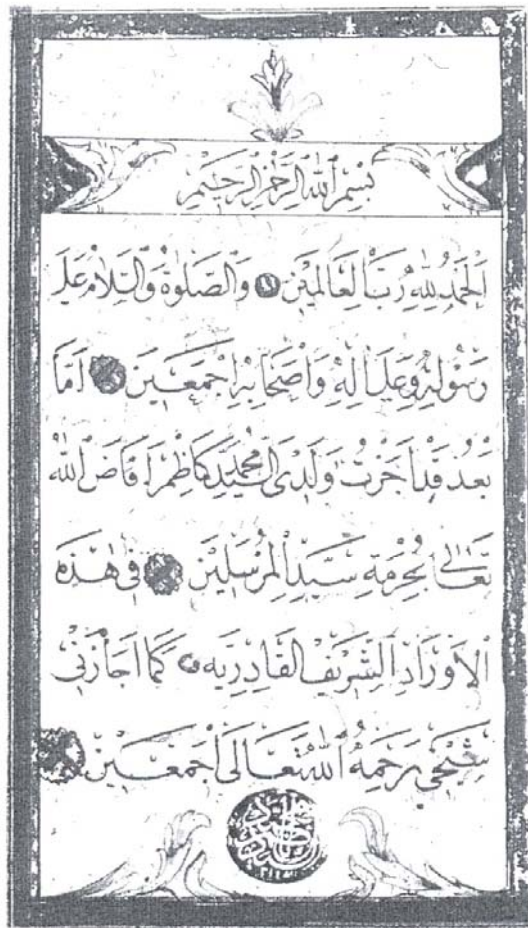 بِسْمِ اللهِ الرَّحْمٰنِ الرَّحِيْمِ
اَلْحَمْدُ لِلّٰهِ رَبِّ الْعَالَمِيْنَ وَالصَّلٰوةُ وَالسَّلَامُ عَلٰى
رَسُوْلِهِ وَعَلٰى اٰلِهِ وَاَصْحَابِهِ اَجْمَعِيْنَ اَمَّا
بَعْدُ قَدْ اَجَزْتُ وَلَدِى السَّيِّدْ مُحَمَّدْ كَاظِمْ اَفَاضَ اللهُ
تَعَالٰى بِحُرْمَةِ سَيِّدِ الْمُرْسَلِيْنَ فِى هٰذِهِ
الْاَوْرَادِ الشَّرِيْفِ الْقَادِرِيَّه كَمَا اَجَازَنِى
شَيْخِى رَحِمَهُ اللهُ تَعَالَى اَجْمَعِيْنَ